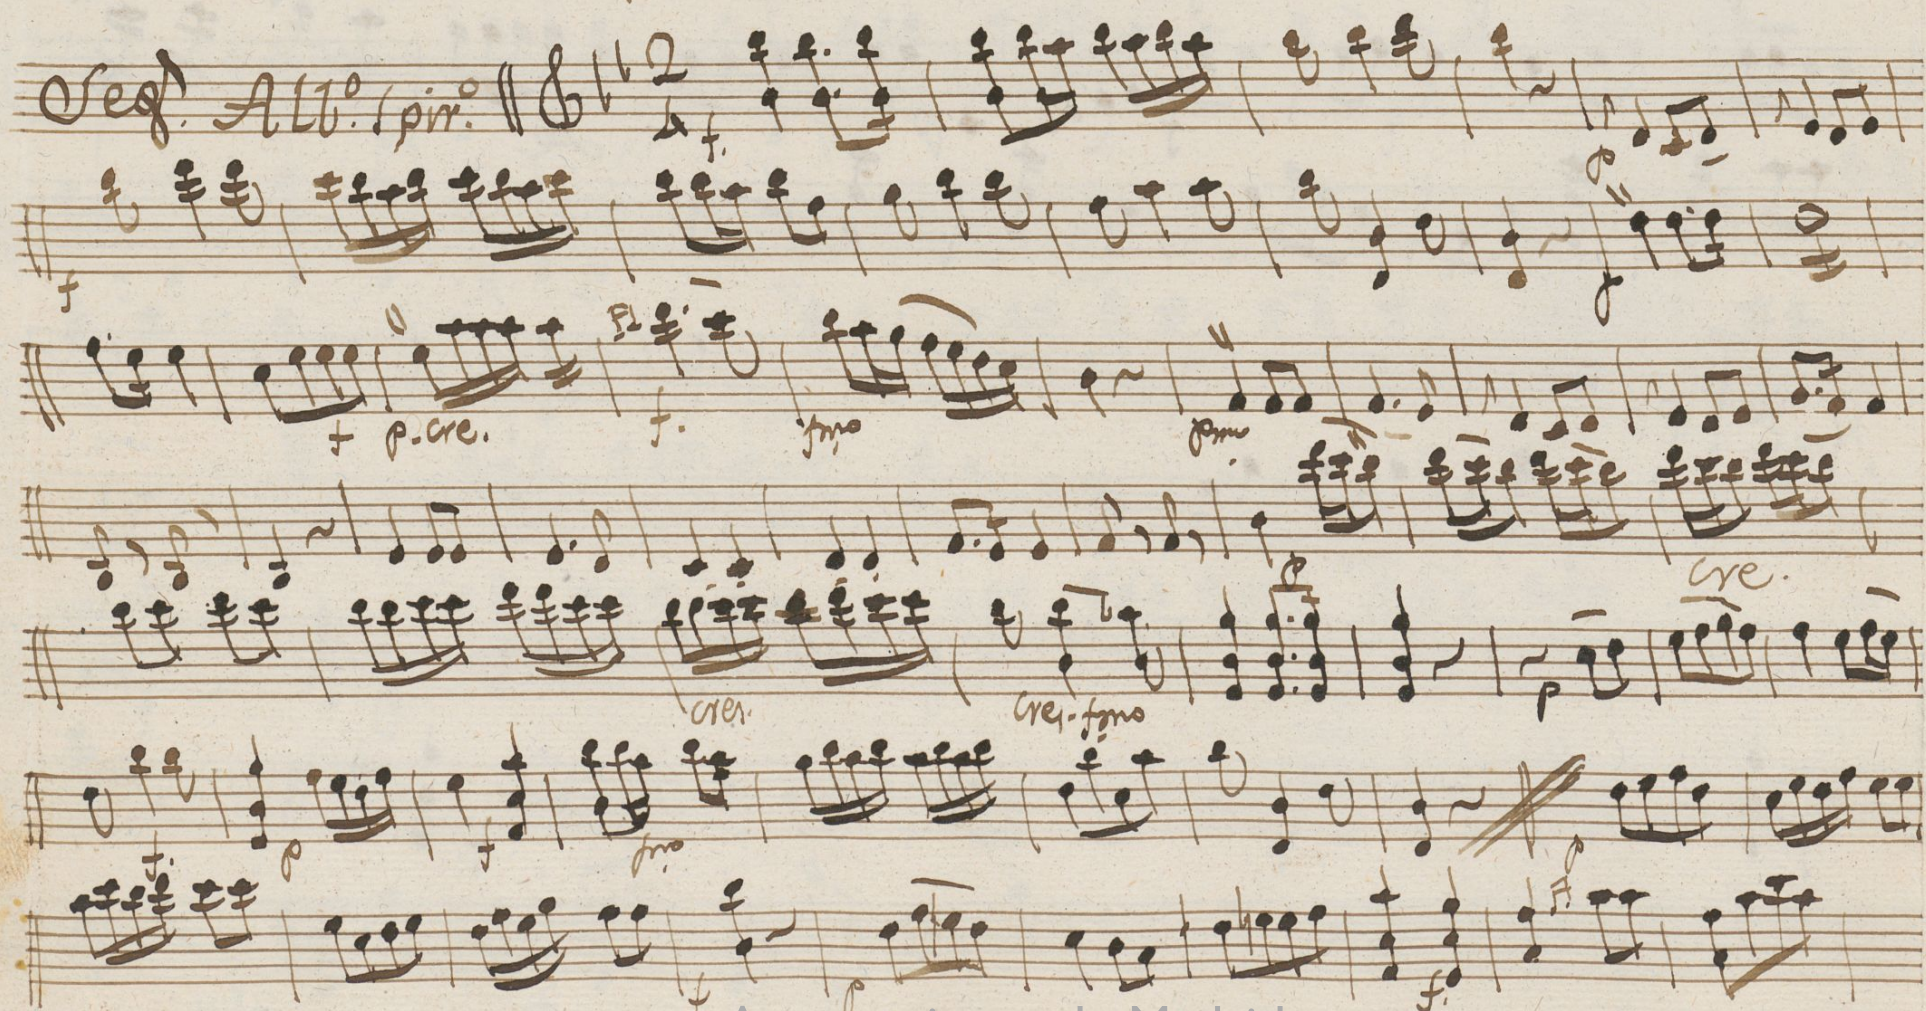 Seq. All.o spir.o 2 4 f. p
f f
f p. cre. Fl f. fmo pmo
p cre.
cres. cres. fmo p
f. p f fmo p
f p f. Fl